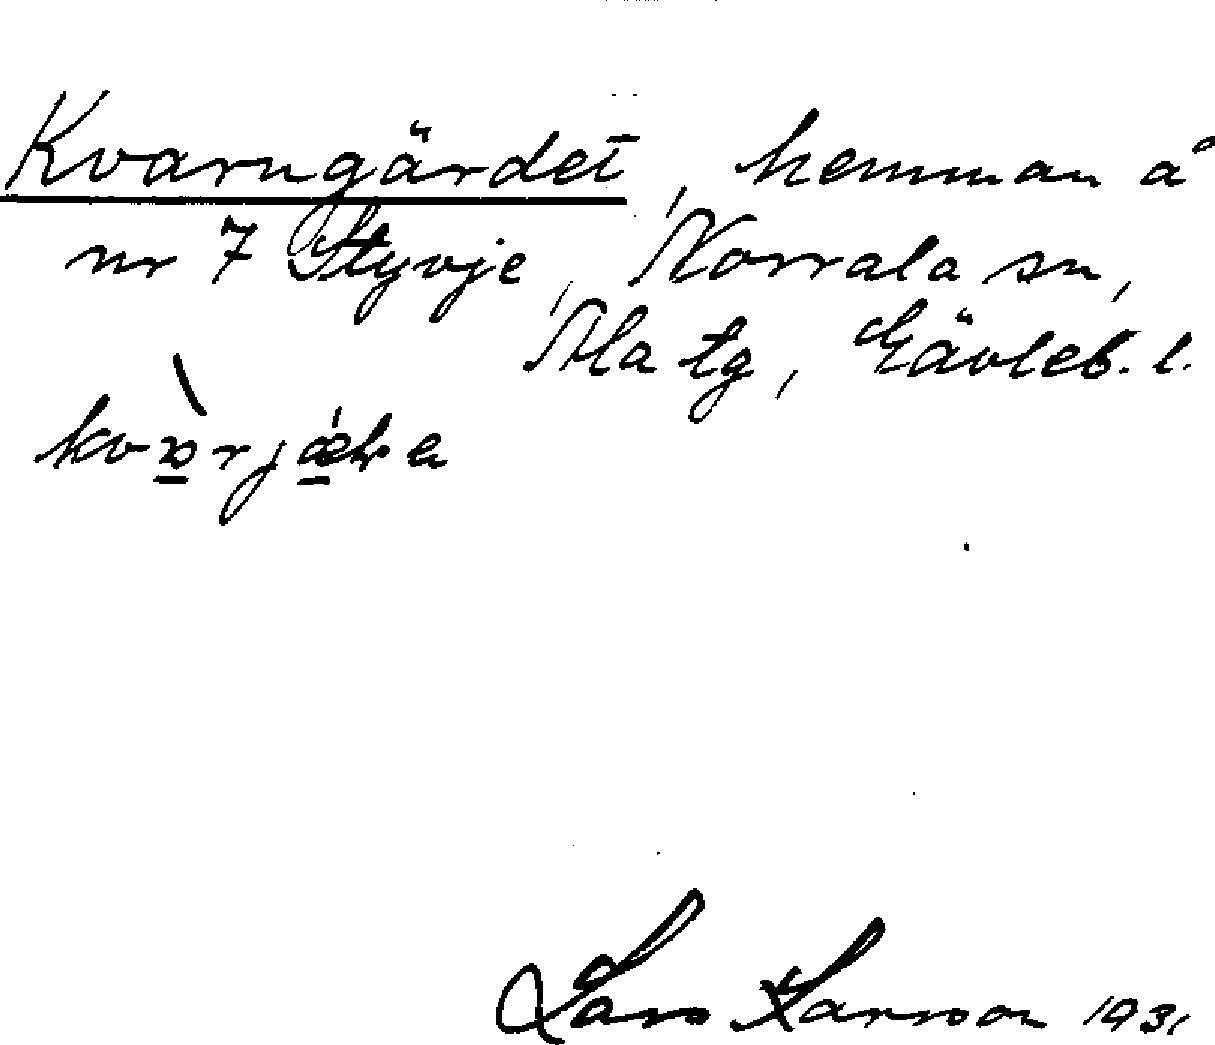 Kvarngärdet, hemman å
nr 7 Styvje, Norrala sn,
Ala tg, Gävleb. l.
Lars Larsson 1931